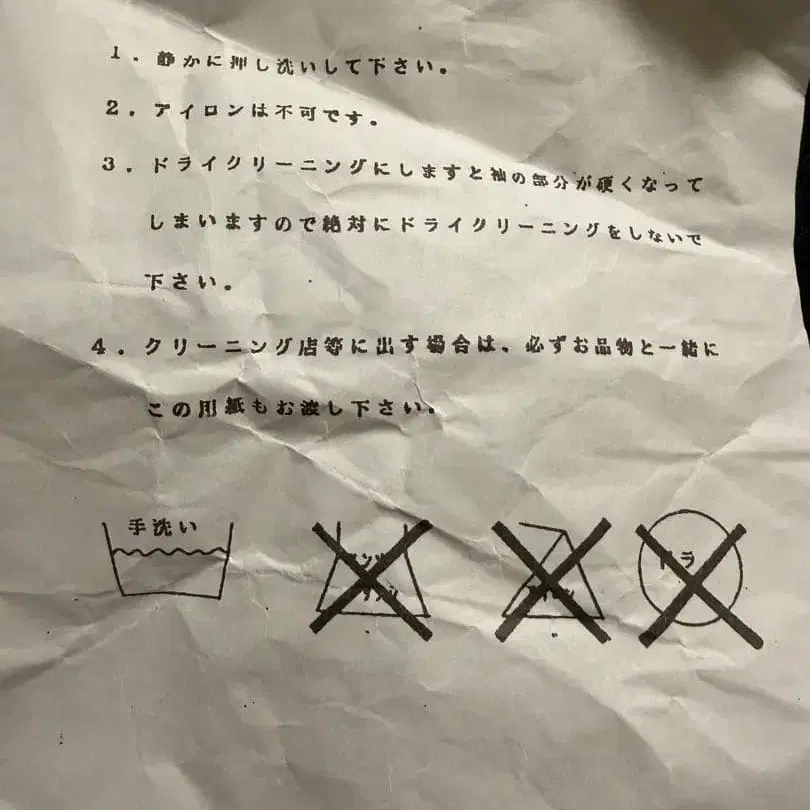 1．静かに押し洗いして下さい。
2．アイロンは不可です。
3．ドライクリーニングにしますと袖の部分が硬くなって
しまいますので絶対にドライクリーニングをしないで
下さい。
4．クリーニング店等に出す場合は、必ずお品物と一緒に
この用紙もお渡し下さい。
手洗い
ドラ